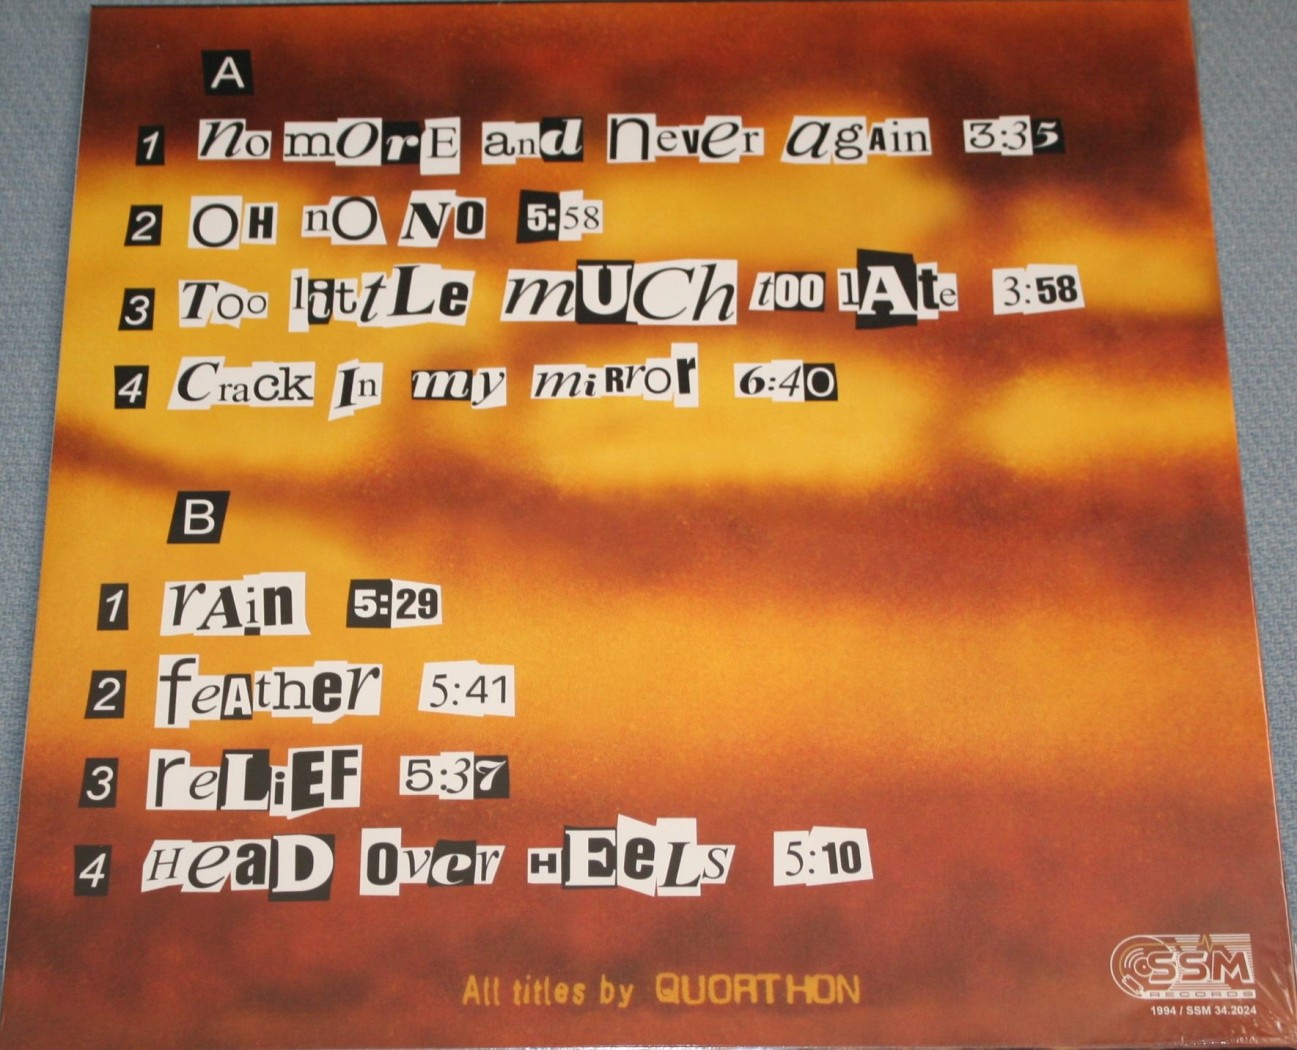 A
1 no mOrE and never again 3:35
2 OH nO NO 5:58
3 Too littLe mUCh too lAte 3:58
4 Crack In my miRror 6:40
B
1 rAin 5:29
2 feAther 5:41
3 reLiEF 5:37
4 HeaD Over HEeLs 5:10
All titles by QUORTHON
SSM
RECORDS
1994 / SSM 34.2024